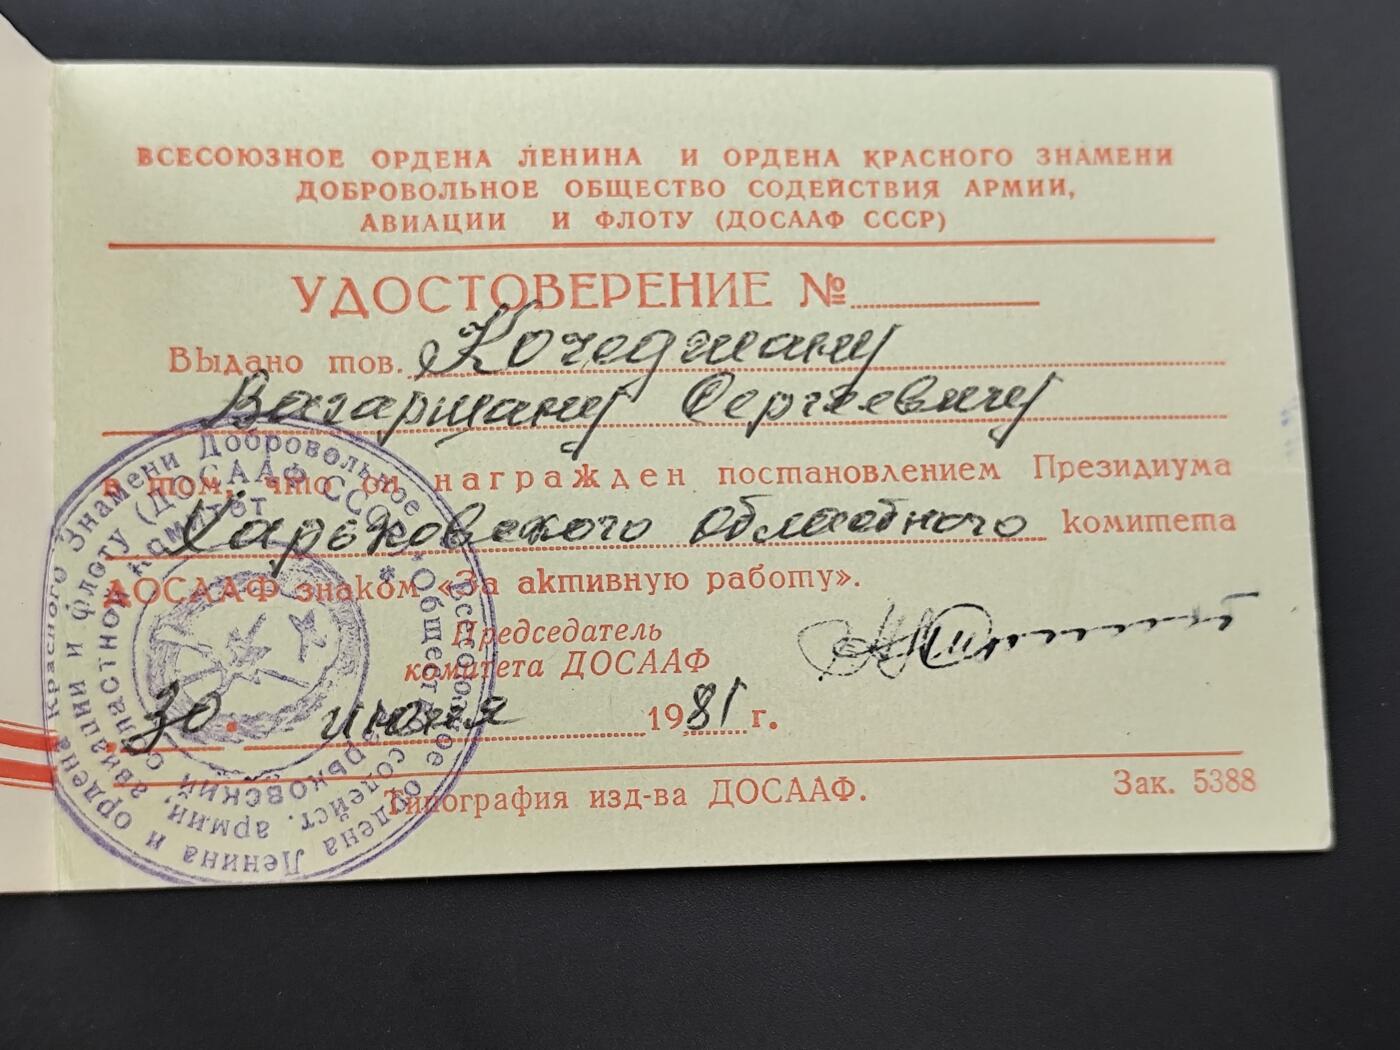 ВСЕСОЮЗНОЕ ОРДЕНА ЛЕНИНА И ОРДЕНА КРАСНОГО ЗНАМЕНИ
ДОБРОВОЛЬНОЕ ОБЩЕСТВО СОДЕЙСТВИЯ АРМИИ,
АВИАЦИИ И ФЛОТУ (ДОСААФ СССР)
УДОСТОВЕРЕНИЕ №
Выдано тов. Кочеджану
Вагаршаку Сергеевичу
в том, что он награжден постановлением Президиума
Харьковского областного комитета
ДОСААФ знаком «За активную работу».
Председатель
комитета ДОСААФ
30. июня 1981 г.
Типография изд-ва ДОСААФ. Зак. 5388
Всесоюзное ордена Ленина и ордена Красного Знамени Добровольное
Общество содейст. армии, авиации и флоту (ДОСААФ СССР)
Харьковский областной комитет